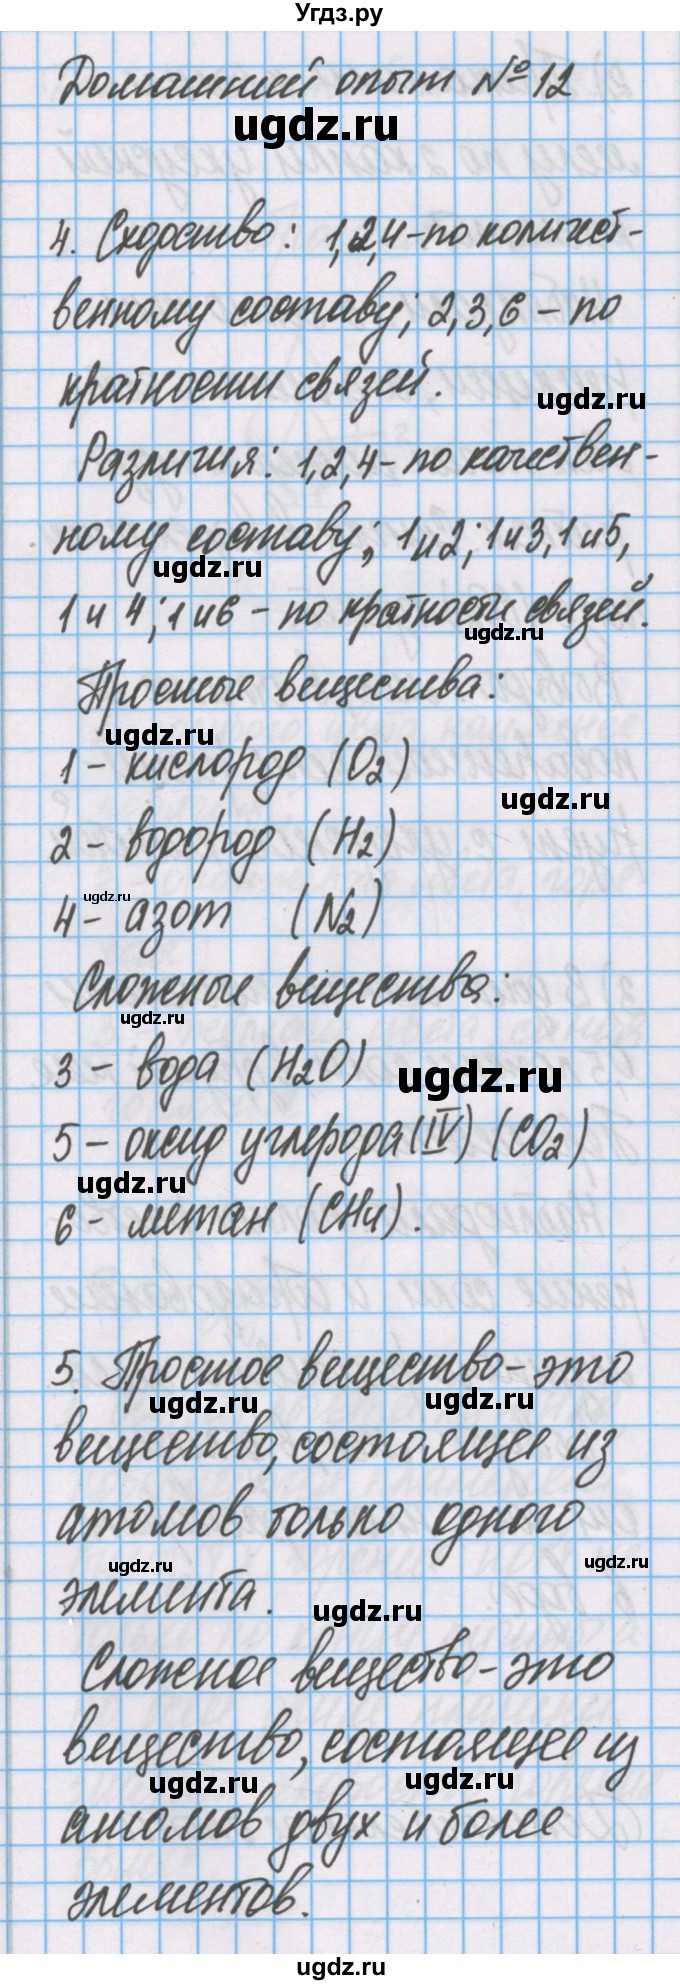 Угдз.ру
Домашний опыт № 12
ugdz.ru
4. Сходство: 1,2,4 - по количест-
венному составу; 2,3,6 - по
кратности связей.
ugdz.ru
Различия: 1,2,4 - по качествен-
ному составу; 1и2; 1и3, 1и5,
ugdz.ru
1 и 4; 1 и 6 - по кратности связей.
ugdz.ru
Простые вещества:
ugdz.ru
1 - кислород (O2)
ugdz.ru
2 - водород (H2)
ugdz.ru
4 - азот (N2)
Сложные вещества:
ugdz.ru
3 - вода (H2O)
ugdz.ru
5 - оксид углерода (IV) (CO2)
ugdz.ru
6 - метан (CH4).
5. Простое вещество - это
ugdz.ru ugdz.ru
вещество, состоящее из
атомов только одного
ugdz.ru ugdz.ru
элемента.
ugdz.ru
Сложное вещество - это
вещество, состоящее из
ugdz.ru ugdz.ru
атомов двух и более
элементов.
ugdz.ru